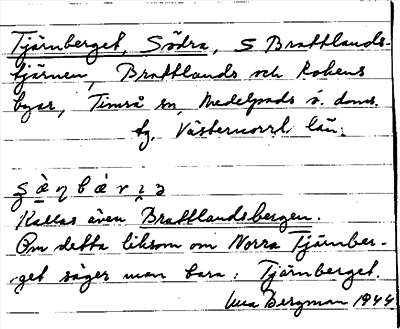 Tjärnberget, Södra, S Brattlands-
tjärnen, Brattlands och Rokens
byar, Timrå sn, Medelpads ö. doms.
tg. Västernorrl. län.
Kallas även Brattlandsbergen.
Om detta liksom om Norra Tjärnber-
get säger man bara: Tjärnberget.
Bergman 1944